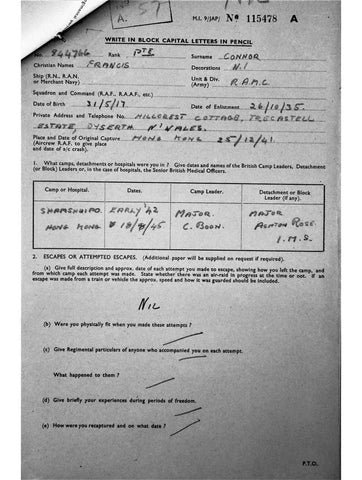 A. 57
M.I. 9/JAP/ No 115478 A
WRITE IN BLOCK CAPITAL LETTERS IN PENCIL
No. Rank PTE Surname CONNOR
Christian Names FRANCIS Decorations N.I
Ship (R.N., R.A.N. or Merchant Navy) Unit & Div. (Army) R.A.M.C.
Squadron and Command (R.A.F., R.A.A.F., etc.)
Date of Birth 31/5/17 Date of Enlistment 26/10/35.
Private Address and Telephone No. HILLCREST COTTAGE, TRECASTELL
ESTATE, DYSERTH N. WALES.
Place and Date of Original Capture HONG KONG 25/12/41.
(Aircrew R.A.F. to give place
and date of a/c crash).
1. What camps, detachments or hospitals were you in? Give dates and names of the British Camp Leaders, Detachment
(or Block) Leaders or, in the case of hospitals, the Senior British Medical Officers.
Camp or Hospital. Dates. Camp Leader. Detachment or Block Leader (if any).
SHAMSHUIPO. EARLY '42 MAJOR. MAJOR
HONG KONG 18/8/45 C. BOON. ASHTON ROSE.
I.M.S.
2. ESCAPES OR ATTEMPTED ESCAPES. (Additional paper will be supplied on request if required).
(a) Give full description and approx. date of each attempt you made to escape, showing how you left the camp, and
from which camp each attempt was made. State whether there was an air-raid in progress at the time or not. If an
escape was made from a train or vehicle the approx. speed and how it was guarded should be included.
NIL
(b) Were you physically fit when you made these attempts?
(c) Give Regimental particulars of anyone who accompanied you on each attempt.
What happened to them?
(d) Give briefly your experiences during periods of freedom.
(e) How were you recaptured and on what date?
P.T.O.